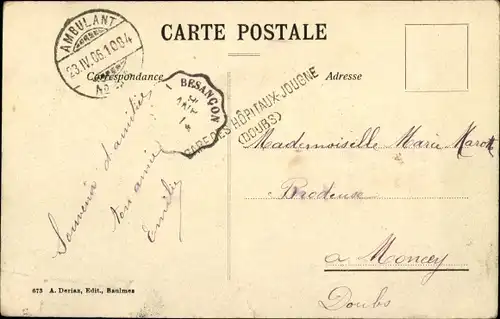 CARTE POSTALE
AMBULANT
23.IV.06.10
Correspondance
Adresse
BESANÇON
GARE DES HÔPITAUX-JOUGNE
(DOUBS)
Souvenir d'amitié
Ton amie
Emilie
Mademoiselle Maria
Brodeuse
à Moncey
Doubs
673 A. Deriaz, Edit., Baulmes